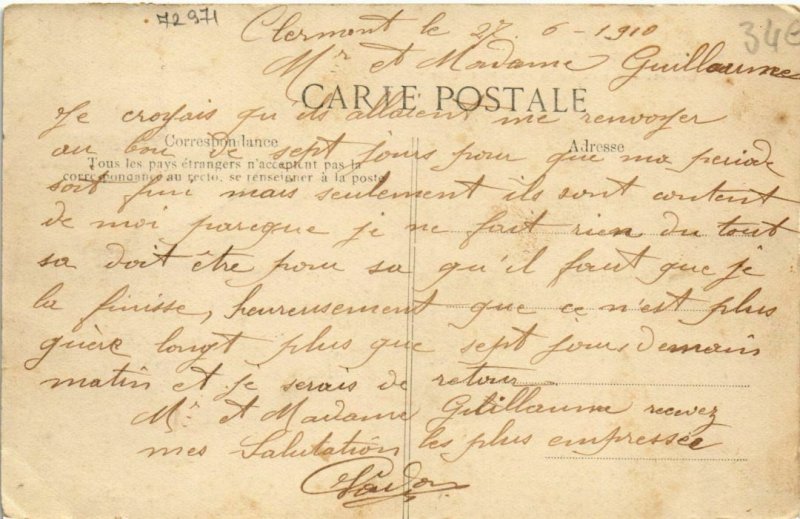 72971
34€
Clermont le 27 6-1910
Mr et Madame Guillaume
CARTE POSTALE
Je croyais qu'ils allaient me renvoyer
Correspondance
Adresse
au bou de sept jours pour que ma periode
Tous les pays étrangers n'acceptent pas la
correspondance au recto, se renseigner à la poste
soit fini mais seulement ils sont content
de moi parceque je ne fait rien du tout
sa doit être pour sa qu'il faut que je
la finisse, heureusement que ce n'est plus
guère longt plus que sept jours demain
matin et je serais de retour
Mr et Madame Guillaume recevez
mes Salutation les plus empressée